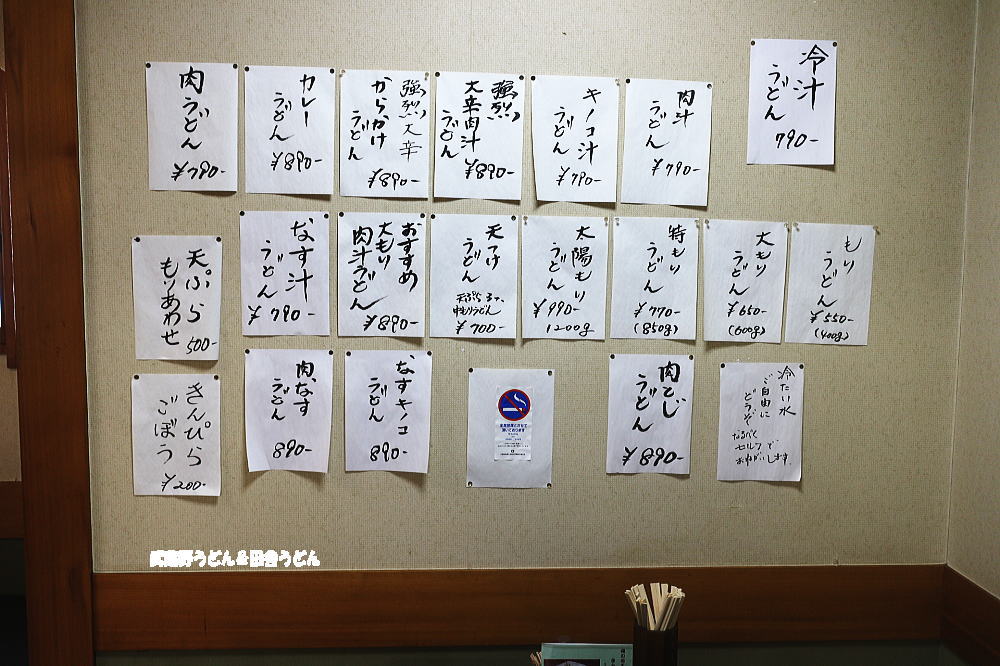 冷汁
うどん
790-
肉汁
うどん
¥790-
キノコ汁
うどん
¥790-
強烈
大辛肉汁
うどん
¥890-
強烈大辛
からかけ
うどん
¥890-
カレー
うどん
¥890-
肉
うどん
¥790-
もり
うどん
¥550-
(400g)
大もり
うどん
¥650-
(600g)
特もり
うどん
¥770-
(850g)
太陽もり
うどん
¥990-
1200g
天つけ
うどん
中もりうどん
¥700-
おすすめ
大もり
肉汁うどん
¥890-
なす汁
うどん
¥790-
天ぷら
もりあわせ
500-
冷たい水
ご自由に
どうぞ
なるべく
セルフで
おねがいします
肉とじ
うどん
¥890-
なすキノコ
うどん
890-
肉なす
うどん
890-
きんぴら
ごぼう
¥200-
武蔵野うどん&田舎うどん